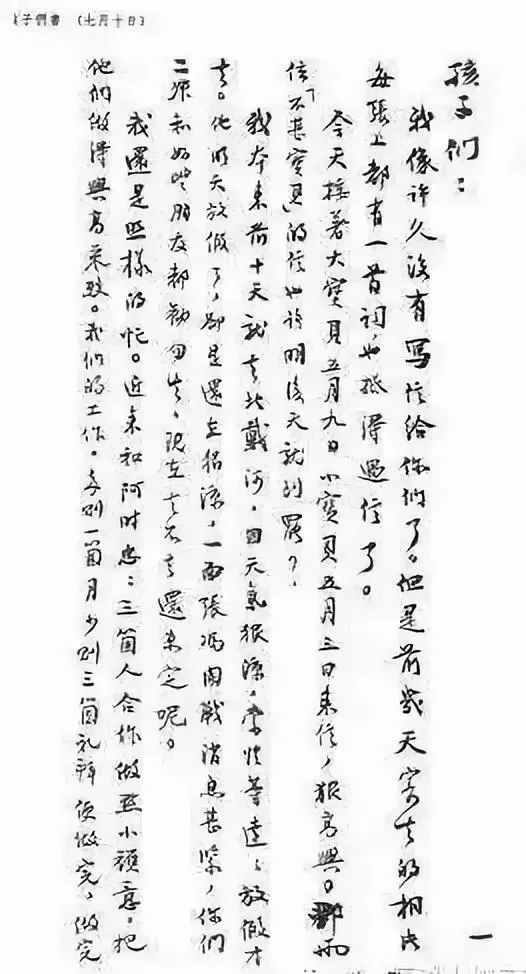 子們書 (七月十日)
孩子們:
我像許久沒有写信給你們了。但是前幾天寄去的相片
每張上都有一首詞,也抵得過信了。
今天接著大寶貝五月九日小寶貝五月三日來信,狠高興。那兩
位「不甚寶貝」的信也許明後天就到罷?
我本來前十天就去北戴河,因天氣狠涼,索性等達達放假才
去。他明天放假了,卻是還在狠涼,一面張馮開戰消息甚緊,你們
二叔和好些朋友都勸勿去,現在去不去還未定呢。
我還是照樣的忙。近來和阿時忠忠三箇人合作做點小頑意,把
他們做得興高采烈。我們的工作,多則一箇月少則三箇礼拜便做完,做完
一